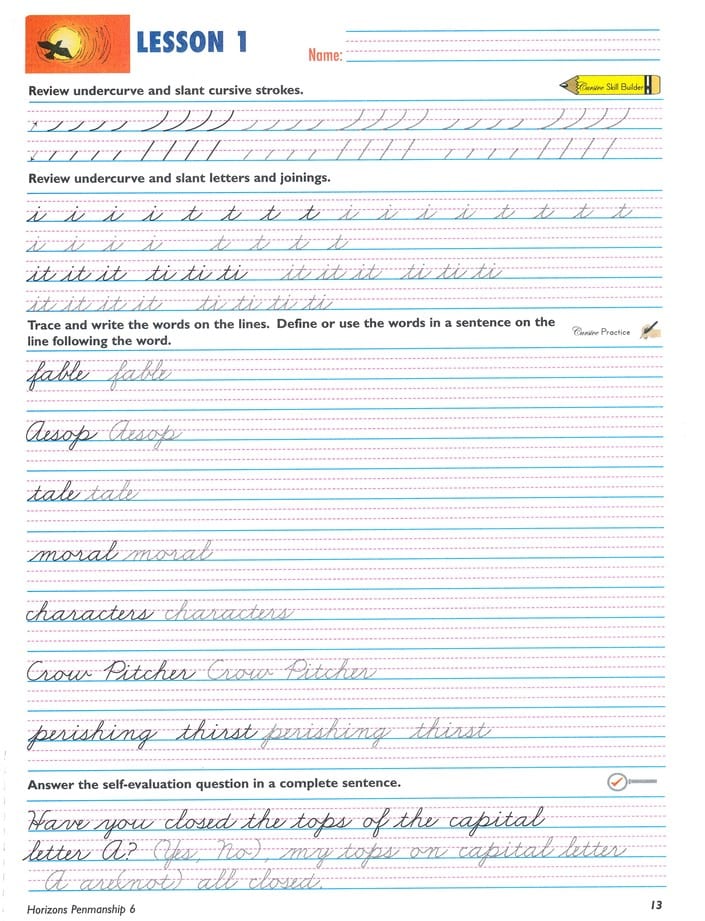 LESSON 1
Name:
Review undercurve and slant cursive strokes.
Cursive Skill Builder
Review undercurve and slant letters and joinings.
i i i i t t t t i i i i t t t t
i i i i t t t t
it it it ti ti ti it it it ti ti ti
it it it it ti ti ti ti
Trace and write the words on the lines. Define or use the words in a sentence on the
line following the word.
Cursive Practice
fable fable
Aesop Aesop
tale tale
moral moral
characters characters
Crow Pitcher Crow Pitcher
perishing thirst perishing thirst
Answer the self-evaluation question in a complete sentence.
Have you closed the tops of the capital
letter A? (Yes, No), my tops on capital letter
A are(not) all closed.
Horizons Penmanship 6
13